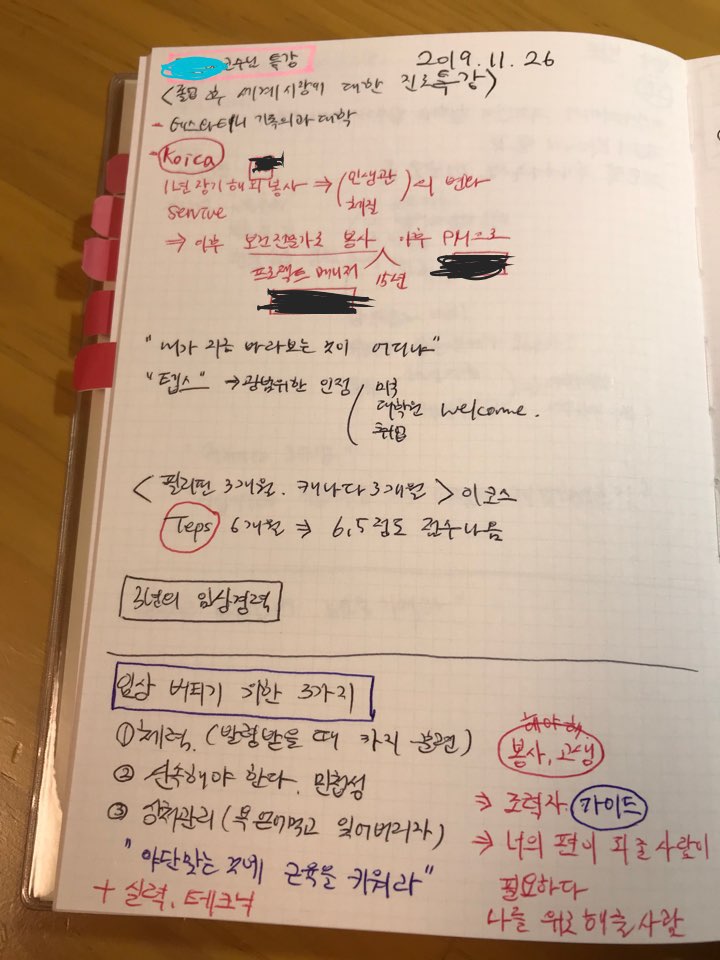 교수님 특강
2019.11.26
<졸업 후 세계시장에 대한 진로특강>
- 가톨릭의과대학
- Koica
1년 장기해외봉사 ⇒ (인생관 체질)의 변화
service
⇒ 이후 보건전문가로 봉사 이후 PM으로
프로젝트 매니저 15년
"내가 지금 바라보는 곳이 어디냐"
"텝스" → 광범위한 인정 ( 미국
대학원 welcome.
취업
<필리핀 3개월. 캐나다 3개월> 이코스
Teps 6개월 ⇒ 6.5정도 점수나옴
3년의 임상경력
임상 버티기 위한 3가지
① 체력. (발령받을 때 까지 훈련)
② 신속해야 한다. 민첩성
③ 상처관리 (욕 얻어먹고 잊어버리자)
"야단맞는 것에 근육을 키워라"
+ 실력. 테크닉
해야해
봉사, 고생
⇒ 조력자 가이드
⇒ 너의 편이 되줄 사람이
필요하다
나를 위로해줄 사람